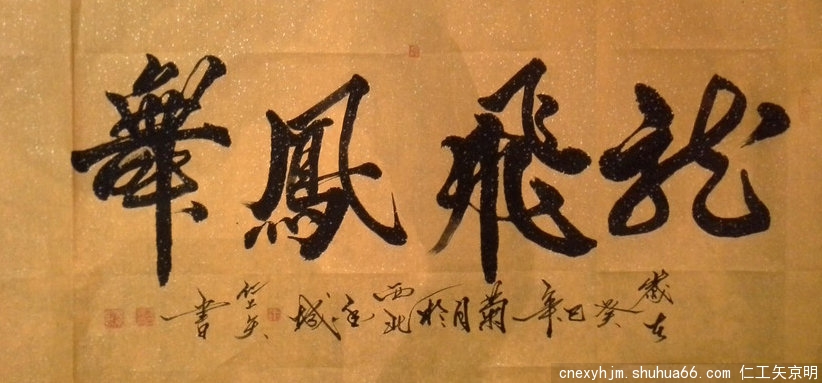 龍飛鳳舞
歲在癸巳年菊月於西北金城仁工矢書
cnexyhjm.shuhua66.com 仁工矢京明